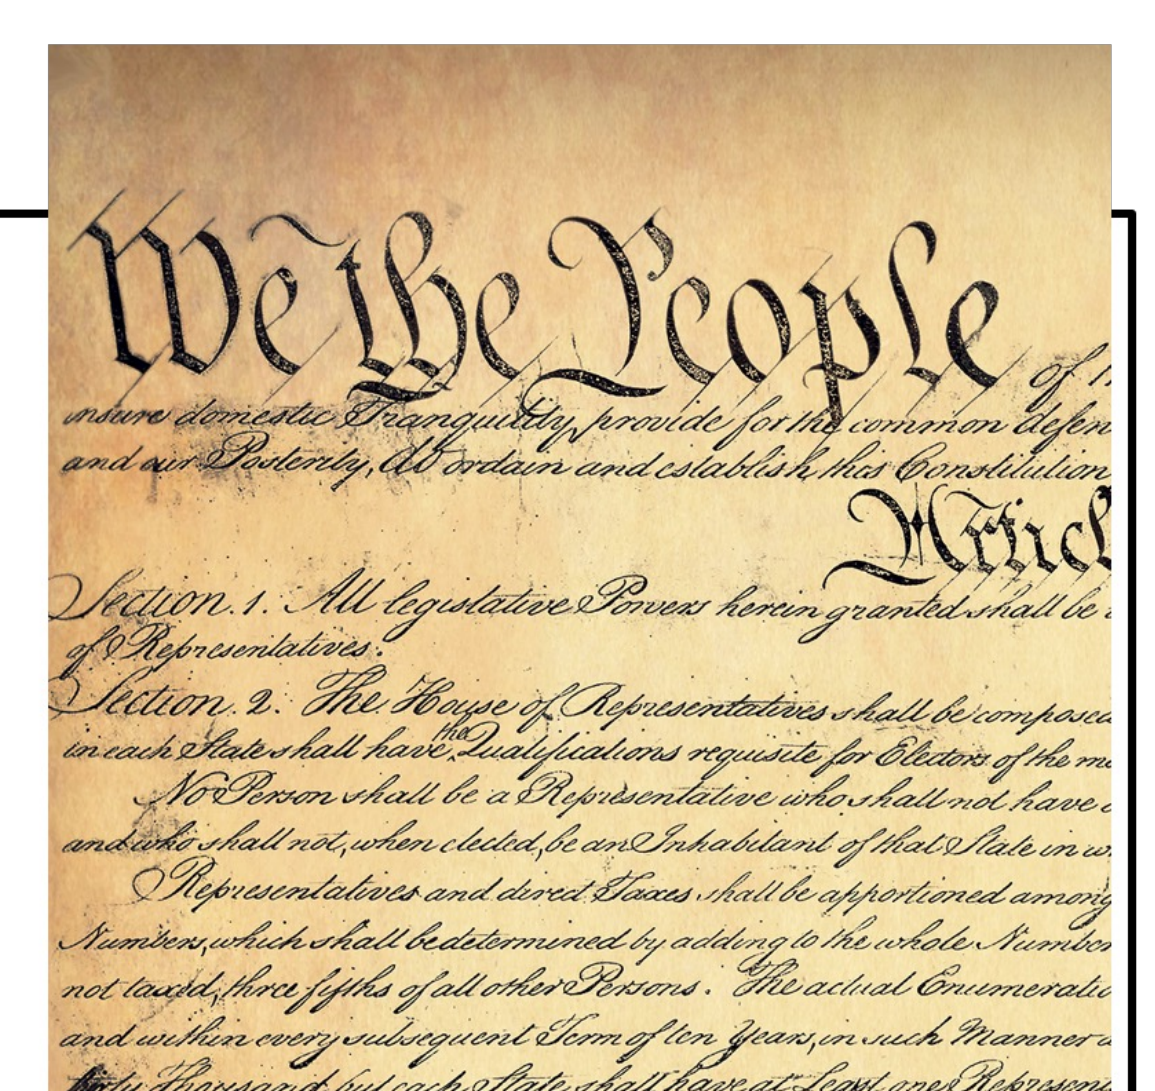 We the People of
insure domestic Tranquility, provide for the common defen
and our Posterity, do ordain and establish this Constitution
Articl
Section. 1. All legislative Powers herein granted shall be
of Representatives.
Section. 2. The House of Representatives shall be compose
the
in each State shall have Qualifications requisite for Electors of the
No Person shall be a Representative who shall not have
and who shall not, when elected, be an Inhabitant of that State in
Representatives and direct Taxes shall be apportioned among
Numbers, which shall be determined by adding to the whole Number
not taxed, three fifths of all other Persons. The actual Enumeratio
and within every subsequent Term of ten Years, in such Manner
thirty Thousand, but each State shall have at Least one Represen